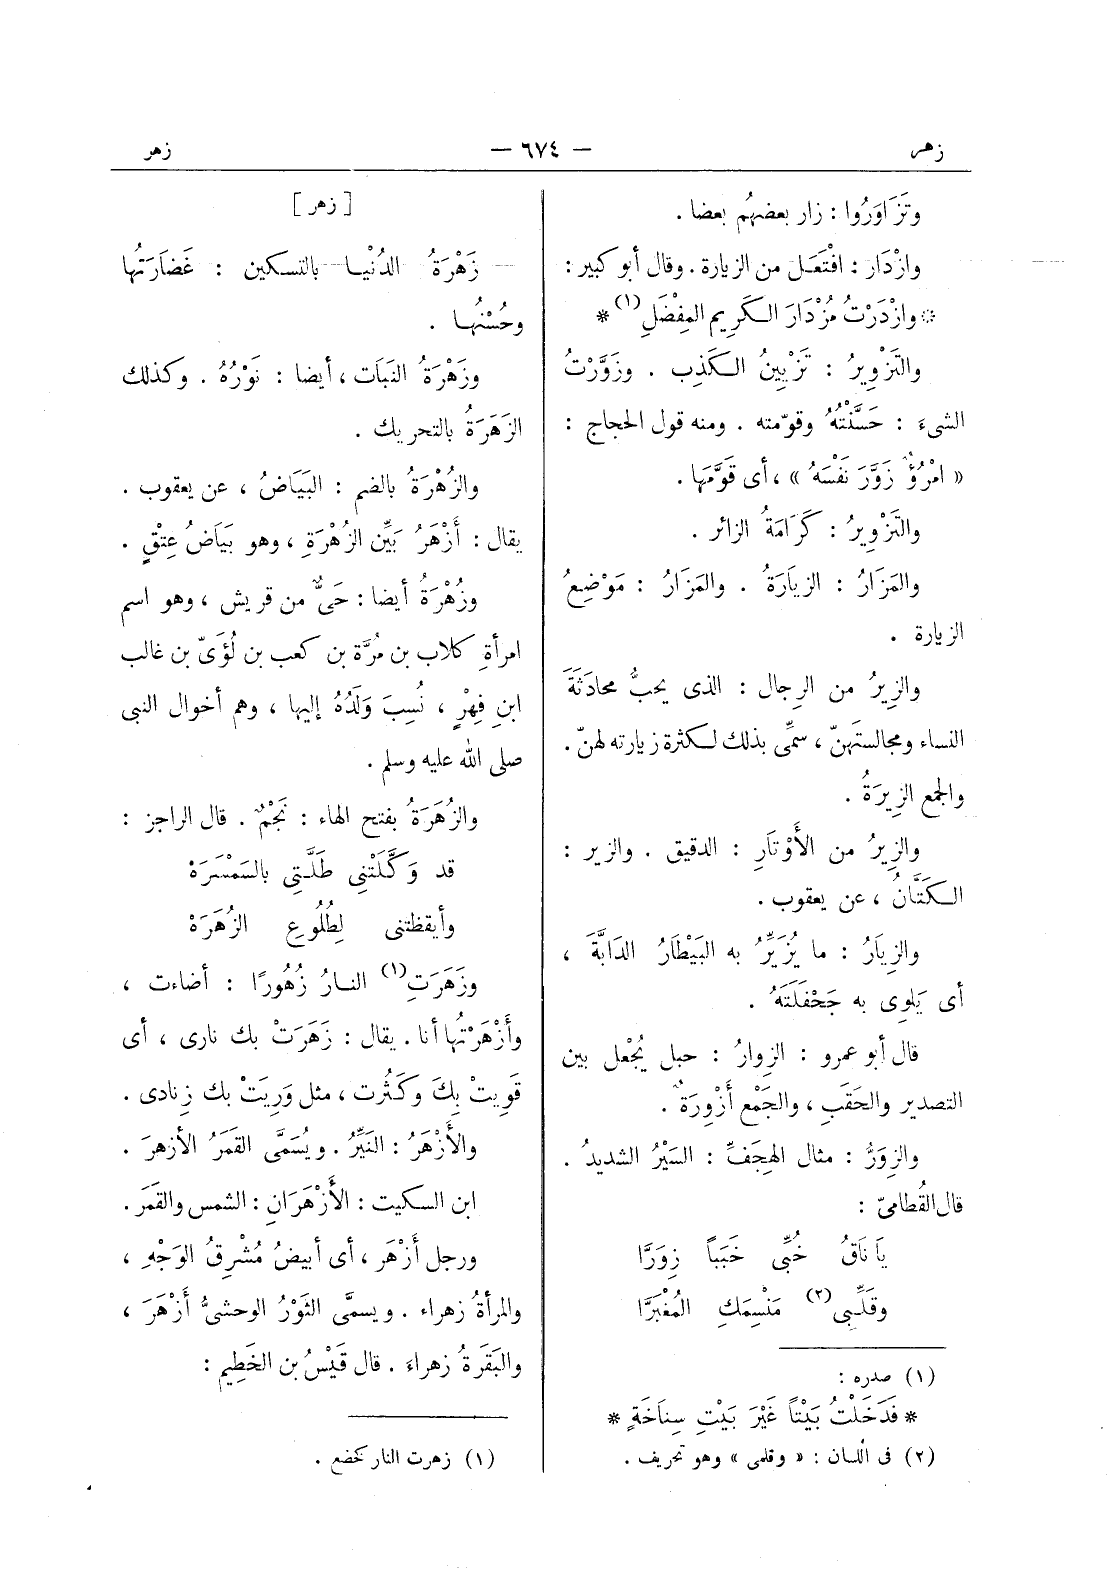 زهر — ٦٧٤ — زهر
وتَزَاوَرُوا : زار بعضهُم بعضا .
وازْدَار : افْتَعَل من الزيارة . وقال أبو كبير :
* وازْدَرْتُ مُزْدَارَ الكَرِيمِ المِفْضَلِ (١) *
والتَزْوِيرُ : تَزْيِينُ الكَذِب . وزَوَّرْتُ
الشىءَ : حَسَّنْتُهُ وقوّمته . ومنه قول الحجاج :
« امْرُؤٌ زَوَّرَ نَفْسَهُ » ، أى قَوَّمَهَا .
والتَزْوِيرُ : كَرَامَةُ الزائر .
والمَزَارُ : الزيَارَةُ . والمَزَارُ : مَوْضِعُ
الزيارة .
والزِيرُ من الرِجال : الذى يحبُّ محادَثَةَ
النساء ومجالستَهنّ ، سمِّى بذلك لكثرة زيارته لهنّ .
والجمع الزِيرَةُ .
والزِيرُ من الأَوْتَارِ : الدقيق . والزير :
الكَتَّانُ ، عن يعقوب .
والزِيَارُ : ما يُزَيِّرُ به البَيْطَارُ الدَابَّةَ ،
أى يَلوِى به جَحْفَلَتَهُ .
قال أبو عمرو : الزِوارُ : حبل يُجْعل بين
التصدير والحَقَبِ ، والجَمْع أَزْوِرَةٌ .
والزِوَرُّ : مثال الهِجَفِّ : السَيْرُ الشديدُ .
قال القُطامىّ :
يَا نَاقُ خُبِّى خَبَباً زِوَرَّا
وقَلِّبِى (٢) مَنْسِمَكِ المُغْبَرَّا
(١) صدره :
* فَدَخَلْتُ بَيْتاً غَيْرَ بَيْتِ سِناخَةٍ *
(٢) فى اللسان : « وقلمى » وهو تحريف .
[ زهر ]
زَهْرَةُ الدُنْيا بالتسكين : غَضَارَتُها
وحُسْنُها .
وزَهْرَةُ النَبَات ، أيضا : نَوْرُهُ . وكذلك
الزَهَرَةُ بالتحريك .
والزُهْرَةُ بالضم : البَيَاضُ ، عن يعقوب .
يقال : أَزْهَرُ بَيِّن الزُهْرَةِ ، وهو بَيَاضُ عِتْقٍ .
وزُهْرَةُ أيضا : حَىٌّ من قريش ، وهو اسم
امرأةِ كلاب بن مُرَّة بن كعب بن لُؤَىّ بن غالب
ابنِ فِهْرٍ ، نُسِبَ وَلَدُهُ إليها ، وهم أخوال النبى
صلى الله عليه وسلم .
والزُهَرَةُ بفتح الهاء : نَجْمٌ . قال الراجز :
قد وَكَّلَتْنِى طَلَّتِى بالسَمْسَرَهْ
وأيقظتنى لِطُلُوعِ الزُهَرَهْ
وزَهَرَتِ (١) النارُ زُهُورًا : أضاءت ،
وأَزْهَرْتُها أنا . يقال : زَهَرَتْ بك نارى ، أى
قَوِيتْ بِكَ وكَثُرت ، مثل وَرِيَتْ بك زِنادى .
والأَزْهَرُ : النَيِّرُ . ويُسَمَّى القَمَرُ الأزهرَ .
ابن السكيت : الأَزْهَرَانِ : الشمس والقَمَر .
ورجل أَزْهَر ، أى أبيضُ مُشْرِقُ الوَجْهِ ،
والمرأةُ زهراء . ويسمَّى الثَوْرُ الوحشىُّ أَزْهَرَ ،
والبَقَرةُ زهراءَ . قال قَيْسُ بن الخَطِيمِ :
(١) زهرت النار كخضع .